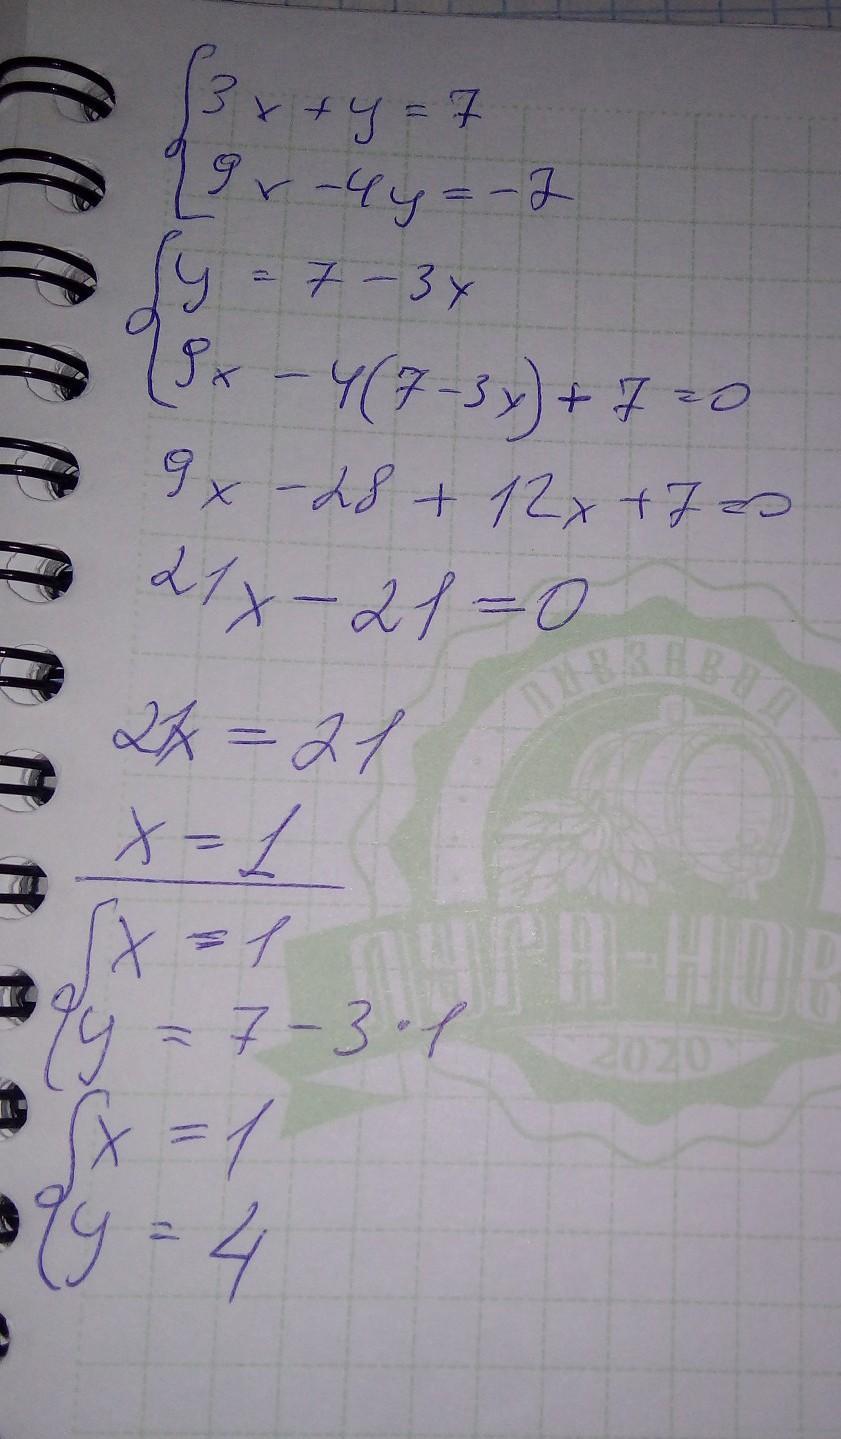 3x + y = 7
9x - 4y = -7
y = 7 - 3x
9x - 4(7-3x) + 7 = 0
9x - 28 + 12x + 7 = 0
21x - 21 = 0
21x = 21
x = 1
x = 1
y = 7 - 3 · 1
x = 1
y = 4
ПИВЗАВОД
ЛУГА-НОВ
2020